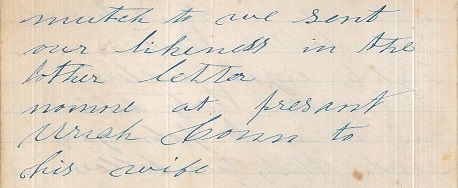 mutch to we sent
our likeness in the
tother letter
nomne at presant
Uriah Conn to
his wife